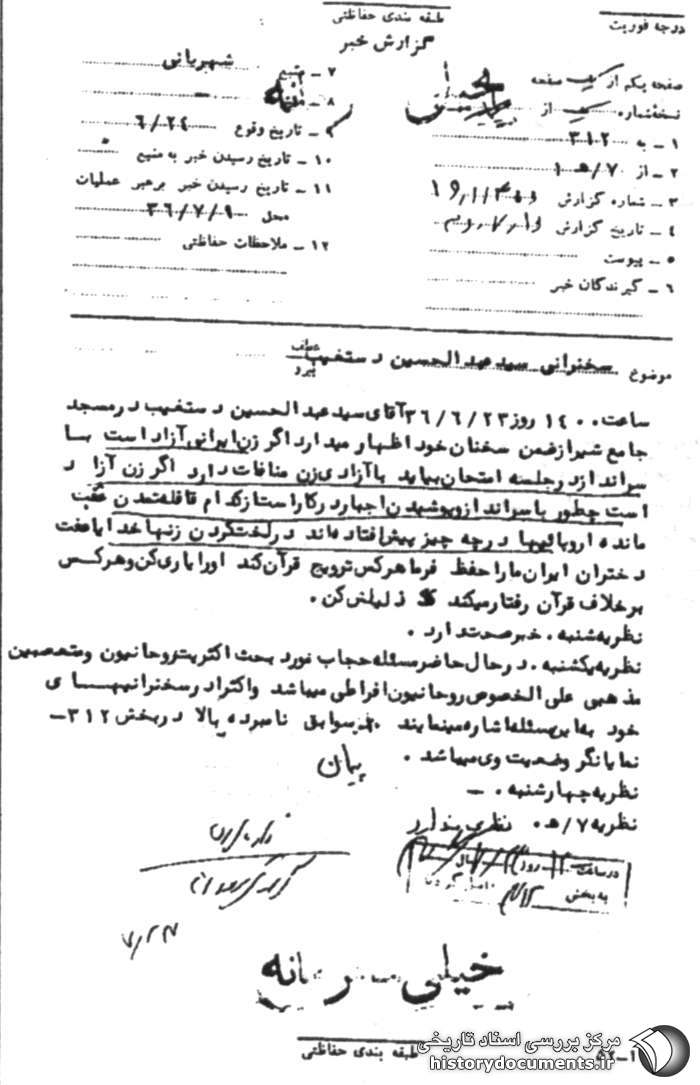 طبقه بندی حفاظتی
درجه فوریت
گزارش خبر
صفحه یکم از یک صفحه
نسخه شماره یک از
۱ – به ۳۱۲
۲ – از ۷۰/ﻫ ۱
۳ – شماره گزارش
۴ – تاریخ گزارش
۵ – پیوست
۶ – گیرندگان خبر
۷ – منبع شهربانی
۸ –
۹ – تاریخ وقوع ۶/۲۴
۱۰ – تاریخ رسیدن خبر به منبع
۱۱ – تاریخ رسیدن خبر برهبر عملیات
محل ۳۶/۷/۹
۱۲ – ملاحظات حفاظتی
خیلی محرمانه
موضوع سخنرانی سید عبدالحسین دستغیب عطف
پیرو
ساعت ۱۴۰۰ روز ۳۶/۶/۲۳ آقای سید عبدالحسین دستغیب در مسجد
جامع شیراز ضمن سخنان خود اظهار میدارد اگر زن ایرانی آزاد است با
سرانداز در جلسه امتحان بیاید با آزادی زن منافات دارد اگر زن آزاد
است چطور با سرانداز و پوشیدن اجبار در کار است از کدام قافله تمدن عقب
مانده اروپائیها در چه چیز پیش افتاده اند در لخت کردن زنها خدایا عفت
دختران ایران ما را حفظ فرما هر کس ترویج قرآن کند او را یاری کن و هر کس
بر خلاف قرآن رفتار میکند ذلیلش کن .
نظریه شنبه . خبر صحت دارد .
نظریه یکشنبه . در حال حاضر مسئله حجاب مورد بحث اکثریت روحانیون و متعصبین
مذهبی علی الخصوص روحانیون افراطی میباشد و اکثرا در سخنرانیهای
خود به این مسئله اشاره مینمایند سوابق نامبرده بالا در بخش ۳۱۲ –
نمایانگر وضعیت وی میباشد .
پیمان
نظریه چهارشنبه . –
نظریه ۷/ﻫ . نظری ندارد
در ساعت روز
به بخش ۳۱۲ واصل گردید
۷/۲۳
خیلی محرمانه
طبقه بندی حفاظتی
۵۲–۱
مرکز بررسی اسناد تاریخی
historydocuments.ir